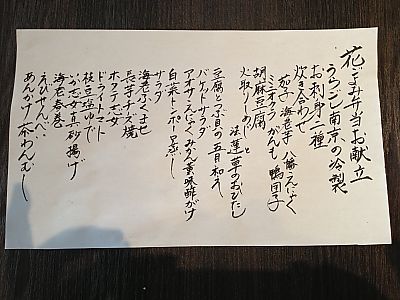 花ごよみ弁当お献立
うらごし南京の冷製
お刺身二種
炊き合わせ
茄子 海老芋 八幡こんにゃく
ミニオクラ がんも 鴨団子
胡麻豆腐
法蓮草のおひたし
豆腐とつぶ貝の五目和え
バケットサラダ
アオサこんにゃく みかん薫味酢がけ
白菜トンポーロ蒸し
サラダ
海老ふくませ
長芋チーズ焼
ホタテ志女
ドライトマト
枝豆塩ゆで
いか志女真砂揚げ
海老春巻
えびせんべい
あんかけ茶わんむし